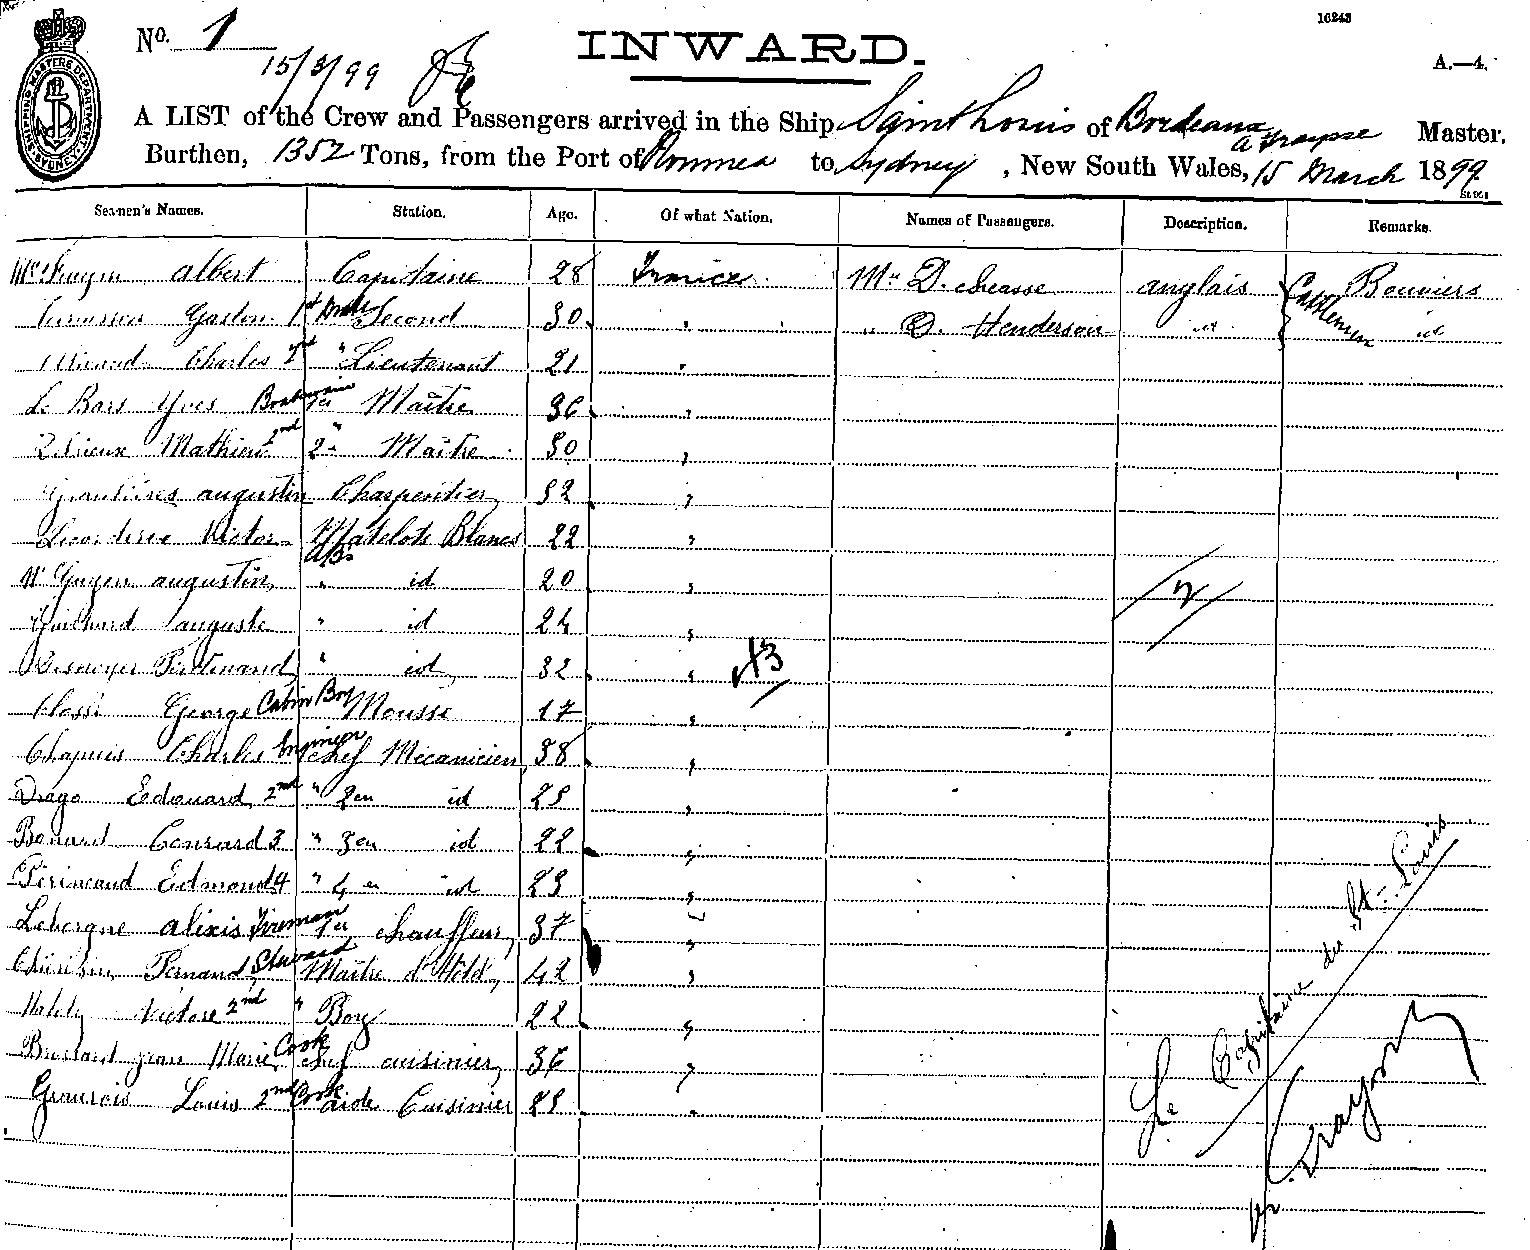 16243
No. 1
INWARD.
A.—4.
15/3/99
SHIPPING MASTERS DEPARTMENT SYDNEY
A LIST of the Crew and Passengers arrived in the Ship Saint Louis of Bordeaux A Master,
Burthen, 1352 Tons, from the Port of Noumea to Sydney, New South Wales, 15 March 1899
Seamen's Names. Station. Age. Of what Nation. Names of Passengers. Description. Remarks.
Albert Capitaine 28 France Mr D. anglais Bouviers
Gaston 1st Mate Second 30 " " D. Henderson id Cattlemen id
Charles 2nd " Lieutenant 21 "
Le Bars Yves Boatswain 1er Maître 36 "
Mathieu 2nd " 2e Maître 30 "
augustin Charpentier 32 "
Victor Matelots Blancs 22 "
ABs
augustin " id 20 " 2
Guichard auguste " id 24 "
Ferdinand " id 32 " 43
George Cabin Boy Mousse 17 "
Chapuis Charles Engineer chef Mécanicien 38 "
Drago Edouard 2nd " 2en id 25 "
Bonard Conrard 3 " 3en id 22 "
Périneaud Edmond 4 " 4en id 23 "
Leborgne alixis Fireman 1er chauffeur 37 "
Fernand Steward Maître d'Hôtel 42 "
Victore 2nd " Boy 22 "
Brossard jean Marie Cook chef cuisinier 36 "
Louis 2nd Cook aide Cuisinier 25 "
Le Capitaine du St. Louis